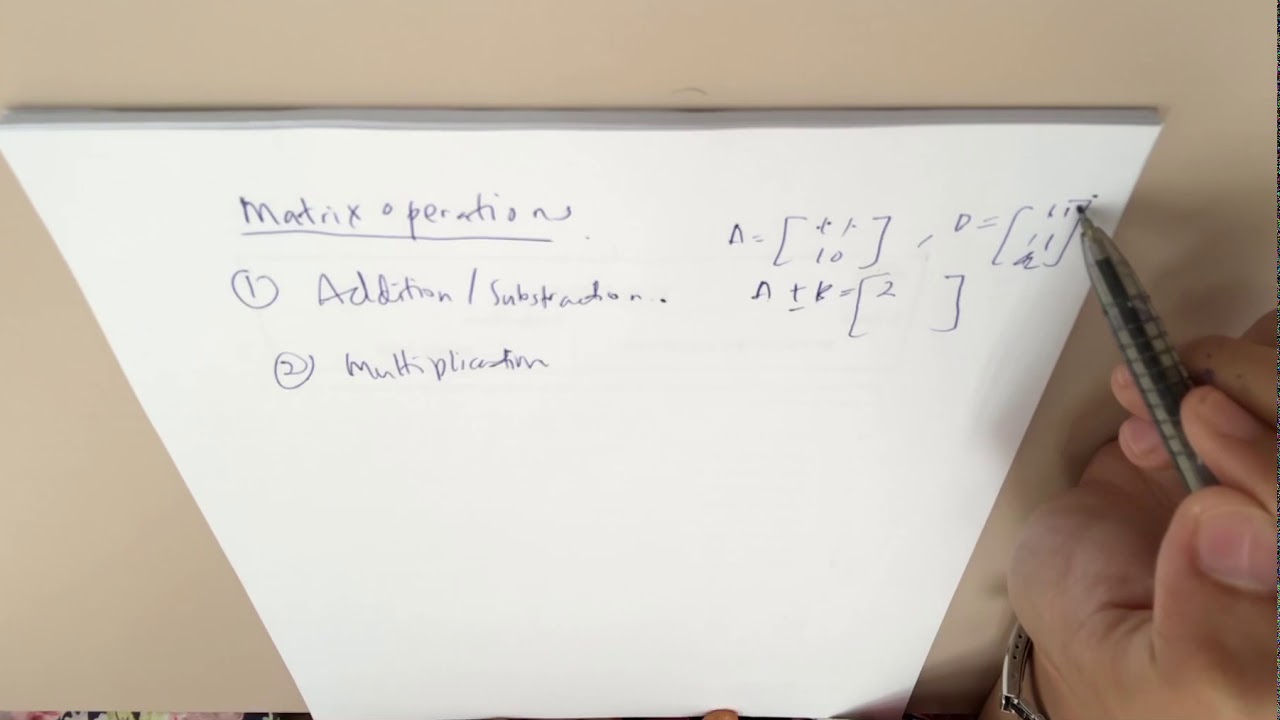 Matrix operations
① Addition / Substraction.
② Multiplication
A = [ 1 0 ] , =
A ± B = [ 2 ]